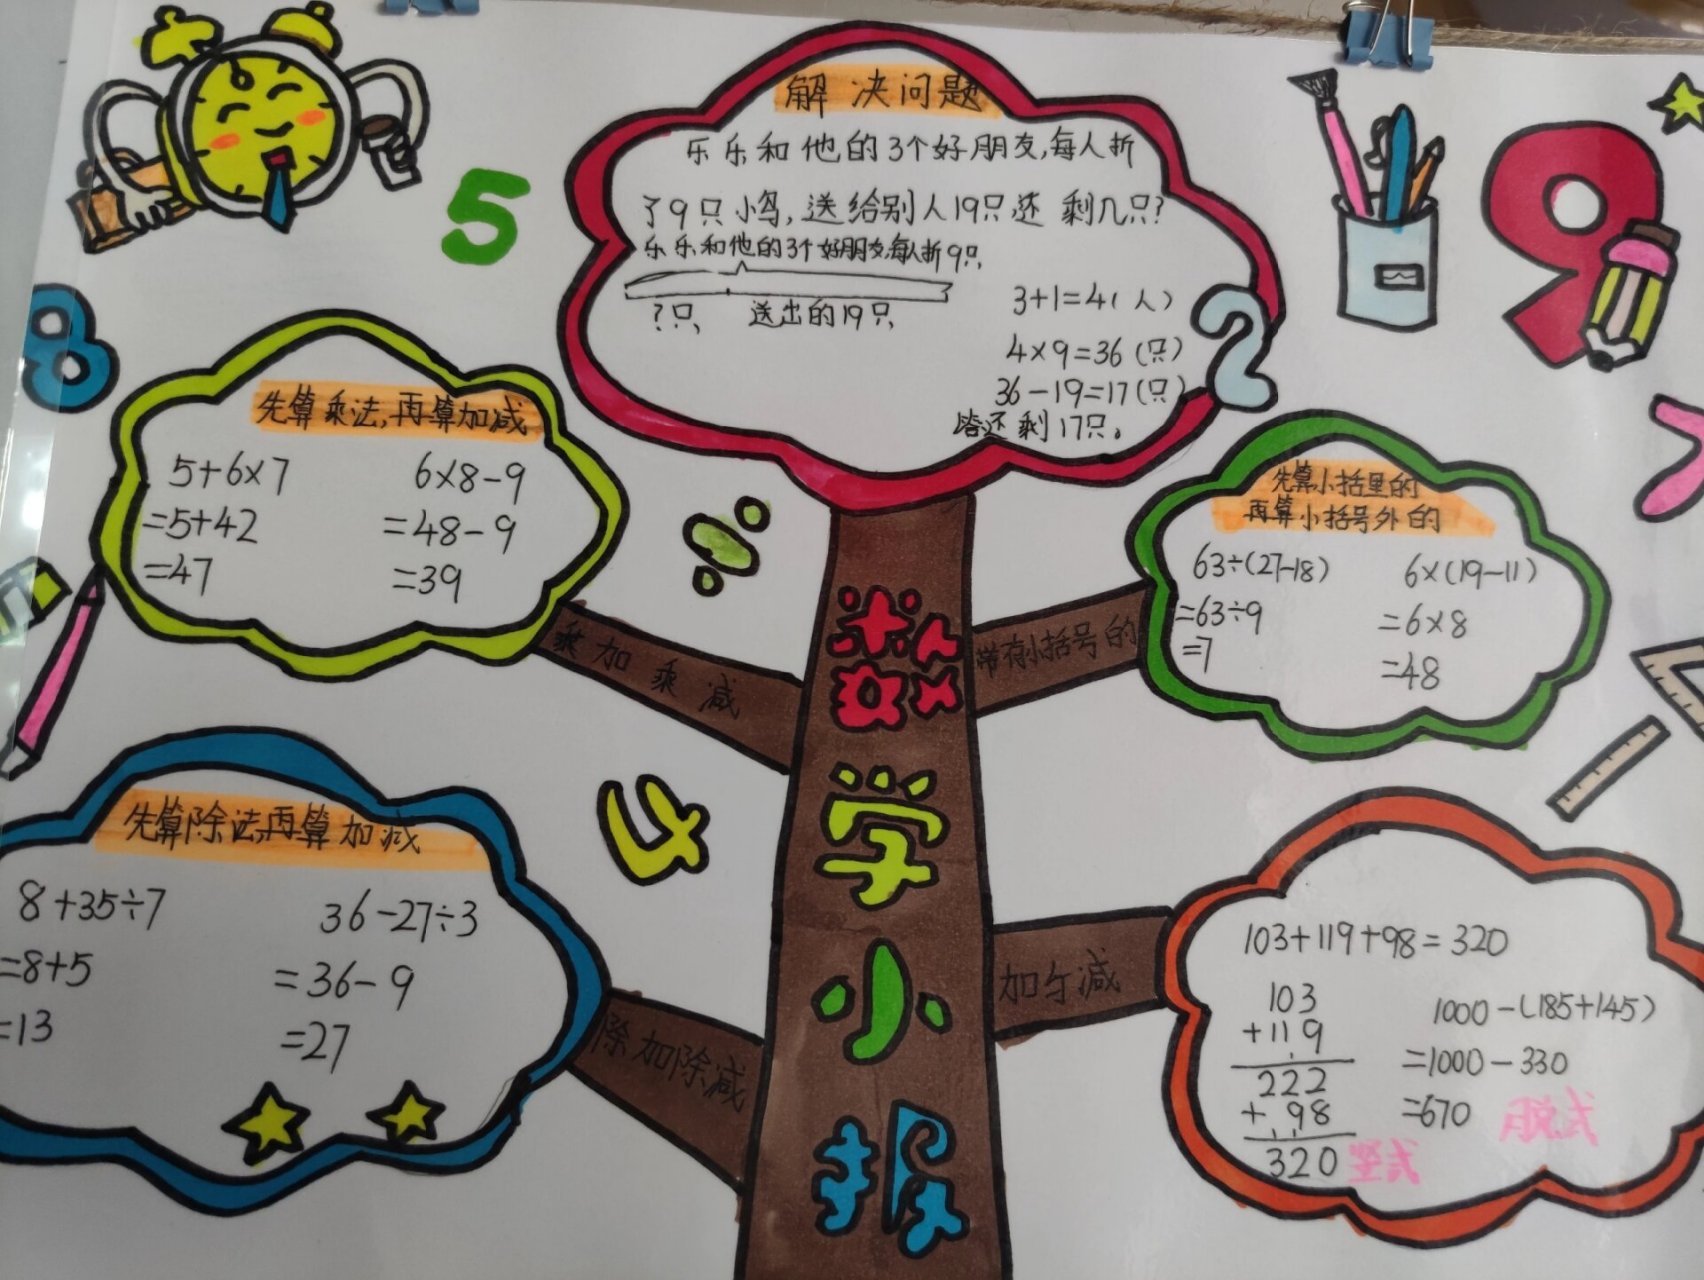 解决问题
乐乐和他的3个好朋友,每人折
了9只小鸟,送给别人19只还剩几只?
乐乐和他的3个好朋友,每人折9只
?只 送出的19只
3+1=4(人)
4×9=36(只)
36-19=17(只)
答还剩17只。
5
8
9
2
7
÷
先算乘法,再算加减
5+6×7 6×8-9
=5+42 =48-9
=47 =39
乘加乘减
先算小括里的
再算小括号外的
63÷(27-18) 6×(19-11)
=63÷9 =6×8
=7 =48
带有小括号的
先算除法,再算加减
8+35÷7 36-27÷3
=8+5 =36-9
=13 =27
除加除减
103+119+98=320
103
+119
222
+98
320
竖式
1000-(185+145)
=1000-330
=670
脱式
加与减
数学小报